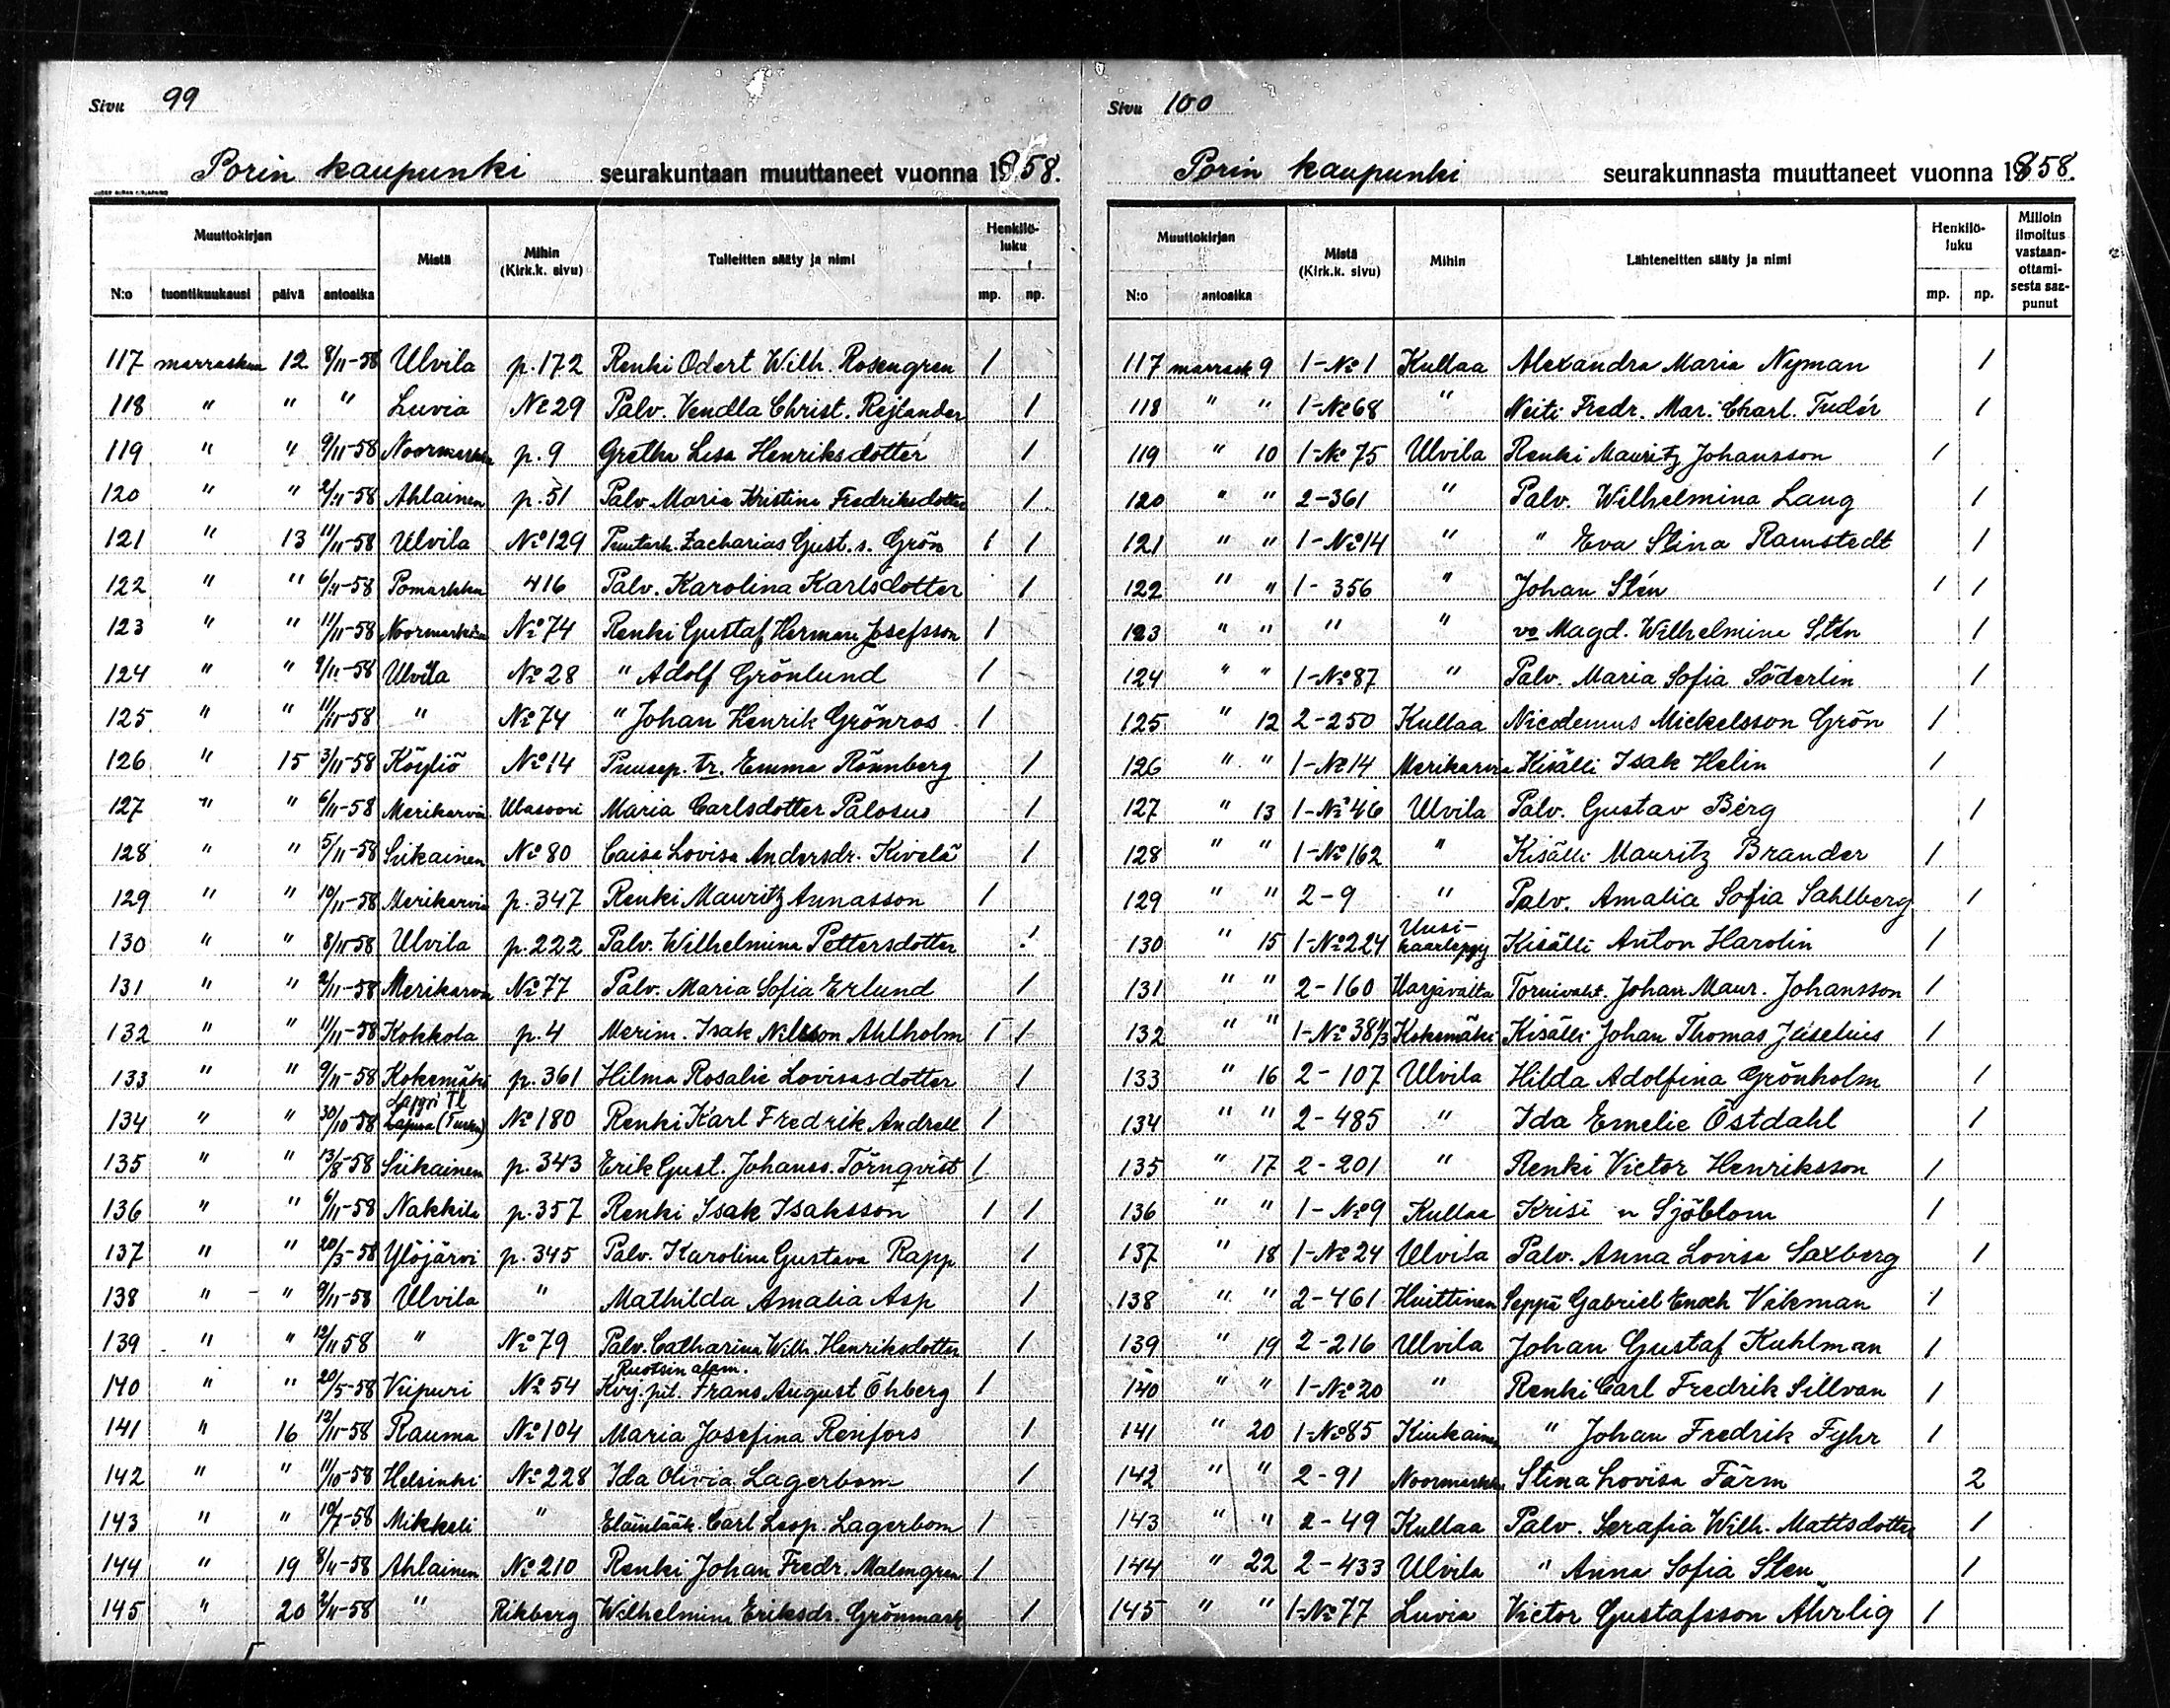 Sivu 99
Porin kaupunki seurakuntaan muuttaneet vuonna 1858.
Muuttokirjan
Mistä
Mihin (Kirk.k. sivu)
Tulleitten sääty ja nimi
Henkilö-luku
N:o tuontikuukausi päivä antoaika mp. np.
117 marraskuu 12 8/11-58 Ulvila p.172 Renki Odert Wilh. Rosengren 1
118 " " " Luvia No 29 Palv. Vendla Christ. Rejlander 1
119 " " 9/11-58 Noormarkku p.9 Gretha Lisa Henriksdotter 1
120 " " 2/11-58 Ahlainen p.51 Palv. Maria Kristina Fredriksdotter 1
121 " 13 11/11-58 Ulvila No 129 Puutarh. Zacharias Gust.s. Grön 1 1
122 " " 6/11-58 Pomarkku 416 Palv. Karolina Karlsdotter 1
123 " " 11/11-58 Noormarkku No 74 Renki Gustaf Herman Josefsson 1
124 " " 9/11-58 Ulvila No 28 " Adolf Grönlund 1
125 " " 11/11-58 " No 74 " Johan Henrik Grönros 1
126 " 15 3/11-58 Köyliö No 14 Puusep. tr. Emma Rönnberg 1
127 " " 6/11-58 Merikarvia Ulasoori Maria Carlsdotter Palosus 1
128 " " 5/11-58 Siikainen No 80 Caisa Lovisa Andersdr. Kivelä 1
129 " " 10/11-58 Merikarvia p.347 Renki Mauritz Annasson 1
130 " " 8/11-58 Ulvila p.222 Palv. Wilhelmina Pettersdotter 1
131 " " 2/11-58 Merikarvia No 77 Palv. Maria Sofia Erlund 1
132 " " 11/11-58 Kokkola p.4 Merim. Isak Nilsson Ahlholm 1 1
133 " " 9/11-58 Kokemäki p.361 Hilma Rosalie Lovisasdotter 1
Lappi Tl
134 " " 30/10-58 Lapua (Turku) No 180 Renki Karl Fredrik Andrell 1
135 " " 13/8-58 Siikainen p.343 Erik Gust. Johanss. Törnqvist 1
136 " " 6/11-58 Nakkila p.357 Renki Isak Isaksson 1 1
137 " " 20/3-58 Ylöjärvi p.345 Palv. Karolina Gustava Rapp 1
138 " " 9/11-58 Ulvila " Mathilda Amalia Asp 1
139 " " 12/11 58 " No 79 Palv. Catharina Wilh. Henriksdotter 1
Ruotsin alam.
140 " " 20/5-58 Viipuri No 54 Kvg. pit. Frans August Öhberg 1
141 " 16 12/11-58 Rauma No 104 Maria Josefina Renfors 1
142 " " 11/10-58 Helsinki No 228 Ida Olivia Lagerbom 1
143 " " 10/7-58 Mikkeli " Eläinlääk. Carl Leop. Lagerbom 1
144 " 19 8/11-58 Ahlainen No 210 Renki Johan Fredr. Malmgren 1
145 " 20 2/11-58 " Rikberg Wilhelmina Eriksdr. Grönmark 1
Sivu 100
Porin kaupunki seurakunnasta muuttaneet vuonna 1858.
Muuttokirjan
Mistä (Kirk.k. sivu)
Mihin
Lähteneitten sääty ja nimi
Henkilö-luku
Milloin ilmoitus vastaan-ottami-sesta saa-punut
N:o antoaika mp. np.
117 marrask 9 1-No 1 Kullaa Alexandra Maria Nyman 1
118 " " 1-No 68 " Neiti Fredr. Mar. Charl. Tudér 1
119 " 10 1-No 75 Ulvila Renki Mauritz Johansson 1
120 " " 2-361 " Palv. Wilhelmina Lang 1
121 " " 1-No 14 " " Eva Stina Ramstedt 1
122 " " 1-356 " Johan Stén 1 1
123 " " " " vo Magd. Wilhelmina Stén 1
124 " " 1-No 87 " Palv. Maria Sofia Söderlin 1
125 " 12 2-250 Kullaa Nicodemus Mickelsson Grön 1
126 " " 1-No 14 Merikarvia Kisälli Isak Helin 1
127 " 13 1-No 46 Ulvila Palv. Gustav Berg 1
128 " " 1-No 162 " Kisälli Mauritz Brander 1
129 " " 2-9 " Palv. Amalia Sofia Sahlberg 1
130 " 15 1-No 224 Uusi-kaarlepyy Kisälli Anton Harolin 1
131 " " 2-160 Harjavalta Tornivaht. Johan Maur. Johansson 1
132 " " 1-No 38 1/3 Kokemäki Kisälli Johan Thomas Juselius 1
133 " 16 2-107 Ulvila Hilda Adolfina Grönholm 1
134 " " 2-485 " Ida Emelie Östdahl 1
135 " 17 2-201 " Renki Victor Henriksson 1
136 " " 1-No 9 Kullaa Krisi n Sjöblom 1
137 " 18 1-No 24 Ulvila Palv. Anna Lovisa Saxberg 1
138 " " 2-461 Huittinen Seppä Gabriel Enoch Vikman 1
139 " 19 2-216 Ulvila Johan Gustaf Kuhlman 1
140 " " 1-No 20 " Renki Carl Fredrik Sillvan 1
141 " 20 1-No 85 Kiukainen " Johan Fredrik Fyhr 1
142 " " 2-91 Noormarkku Stina Lovisa Färm 2
143 " " 2-49 Kullaa Palv. Serafia Wilh. Mattsdotter 1
144 " 22 2-433 Ulvila " Anna Sofia Sten 1
145 " " 1-No 77 Luvia Victor Gustafsson Ährlig 1